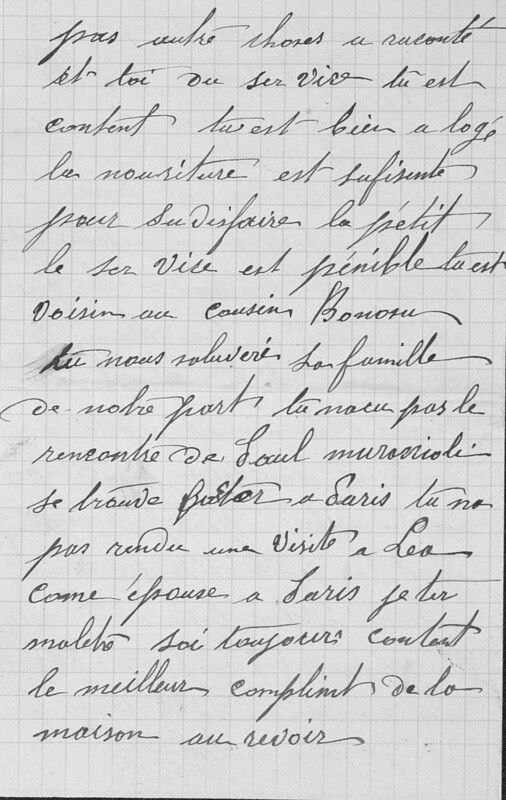 pas autre choses a raconté
et toi du ser vice tu est
content tu est bien a logé
la nouriture est sufisente
pour sudisfaire la pétit
le ser vise est pénible tu est
voisin au cousin Bonosu
tu nous saluveré sa famille
de notre part tu nacu pas le
rencontre de Paul
se trouve a Paris tu na
pas rendu une visite a Lea
come épouse a Paris je ter
mole soi toujours content
le meilleur complimt de la
maison au revoir